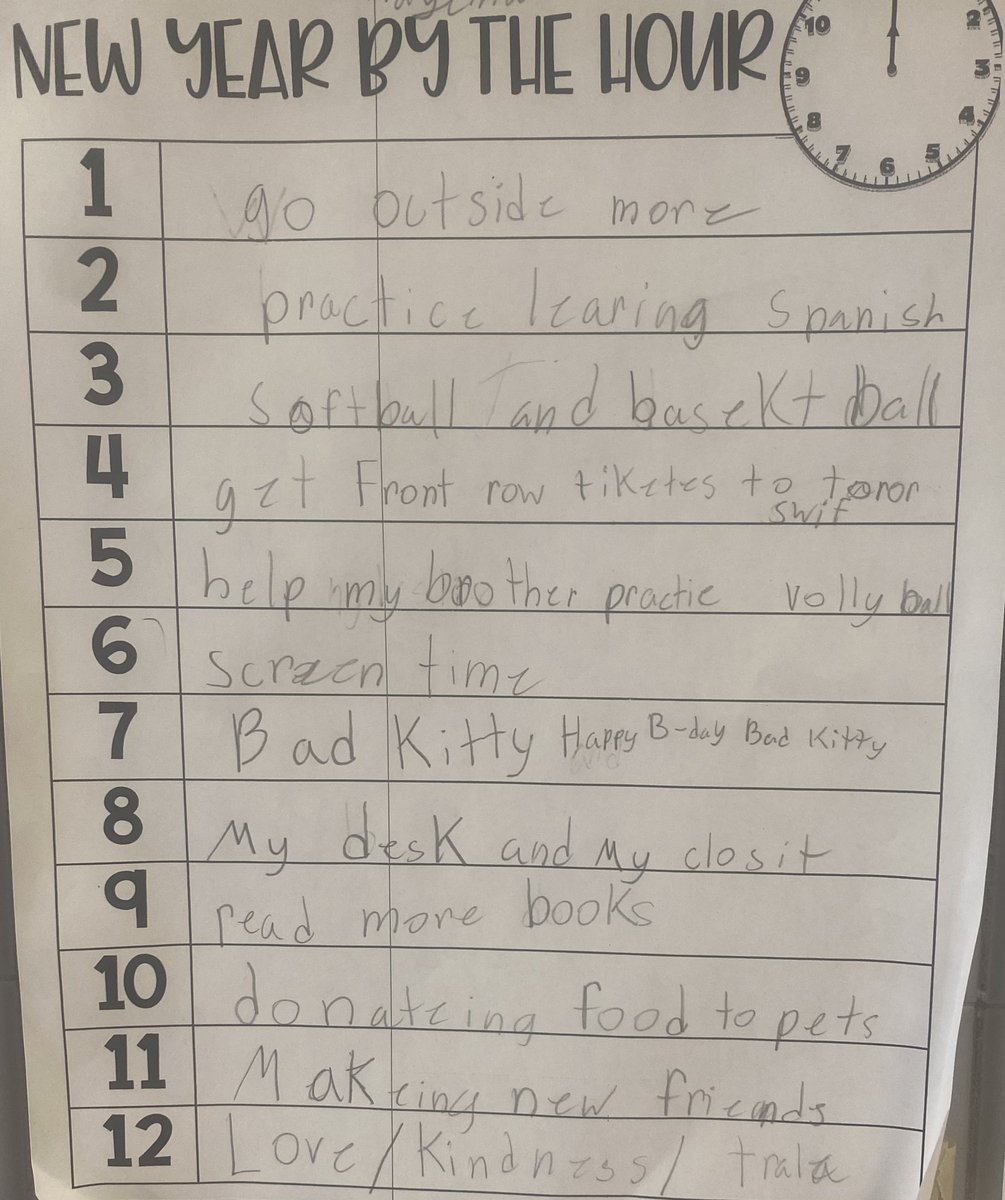 NEW YEAR BY THE HOUR
10 2
9 3
8 4
7 6 5
1 go outside more
2 practice learing Spanish
3 softball and basekt ball
4 get Front row tiketes to toror
swif
5 help my brother practie volly ball
6 screen time
7 Bad Kitty Happy B-day Bad Kitty
8 My desk and My closit
9 read more books
10 donateing food to pets
11 Makeing new friends
12 Love/Kindness/